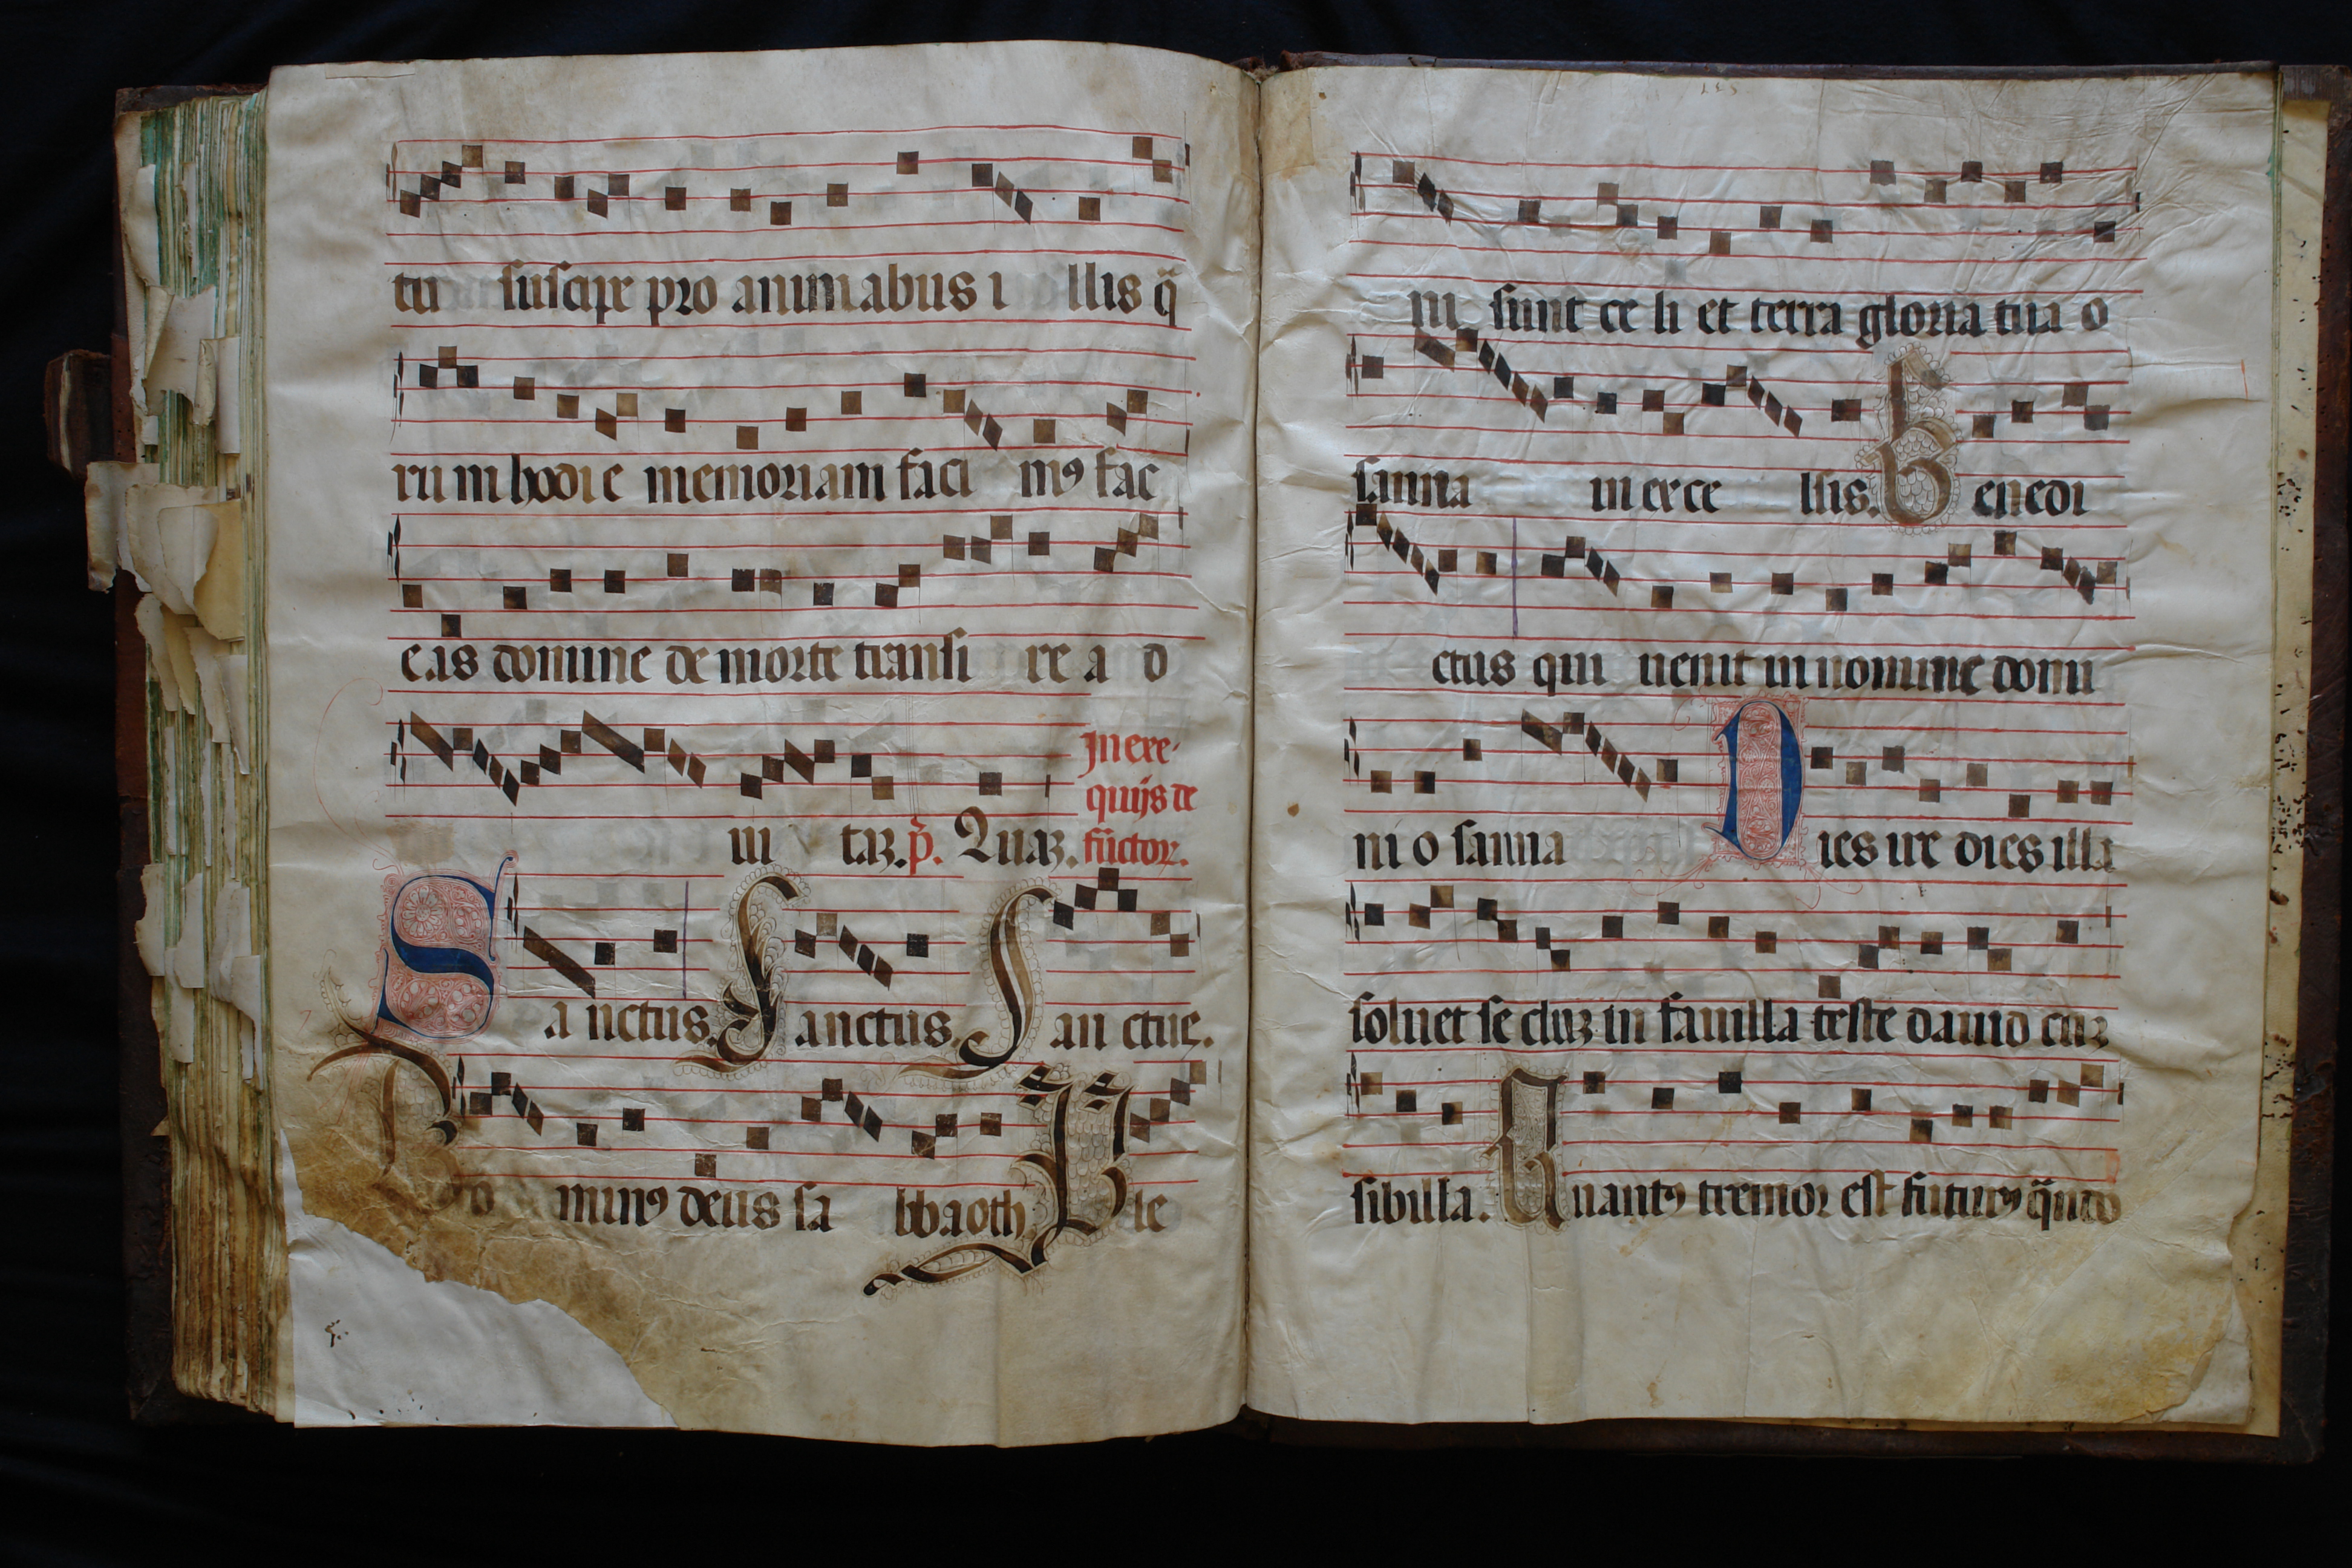 tu suscipe pro animabus i llis q̃
rum hodie memoriam faci mꝰ fac
e as domine de morte transi re a d
In exe-
quijs de
functoꝝ.
ui taꝫ. p̃. Quaꝫ.
S a nctus. S anctus. S an ctus.
D o minꝰ deus sa bbaoth P le
ni sunt ce li et terra gloria tua o
sanna in exce llis. B enedi
ctus qui uenit in nomine domi
ni o sanna D ies ire dies illa
soluet se cluꝫ in fauilla teste dauid cuꝫ
sibilla. Q uantꝰ tremor est futurꝰ q̃ndo